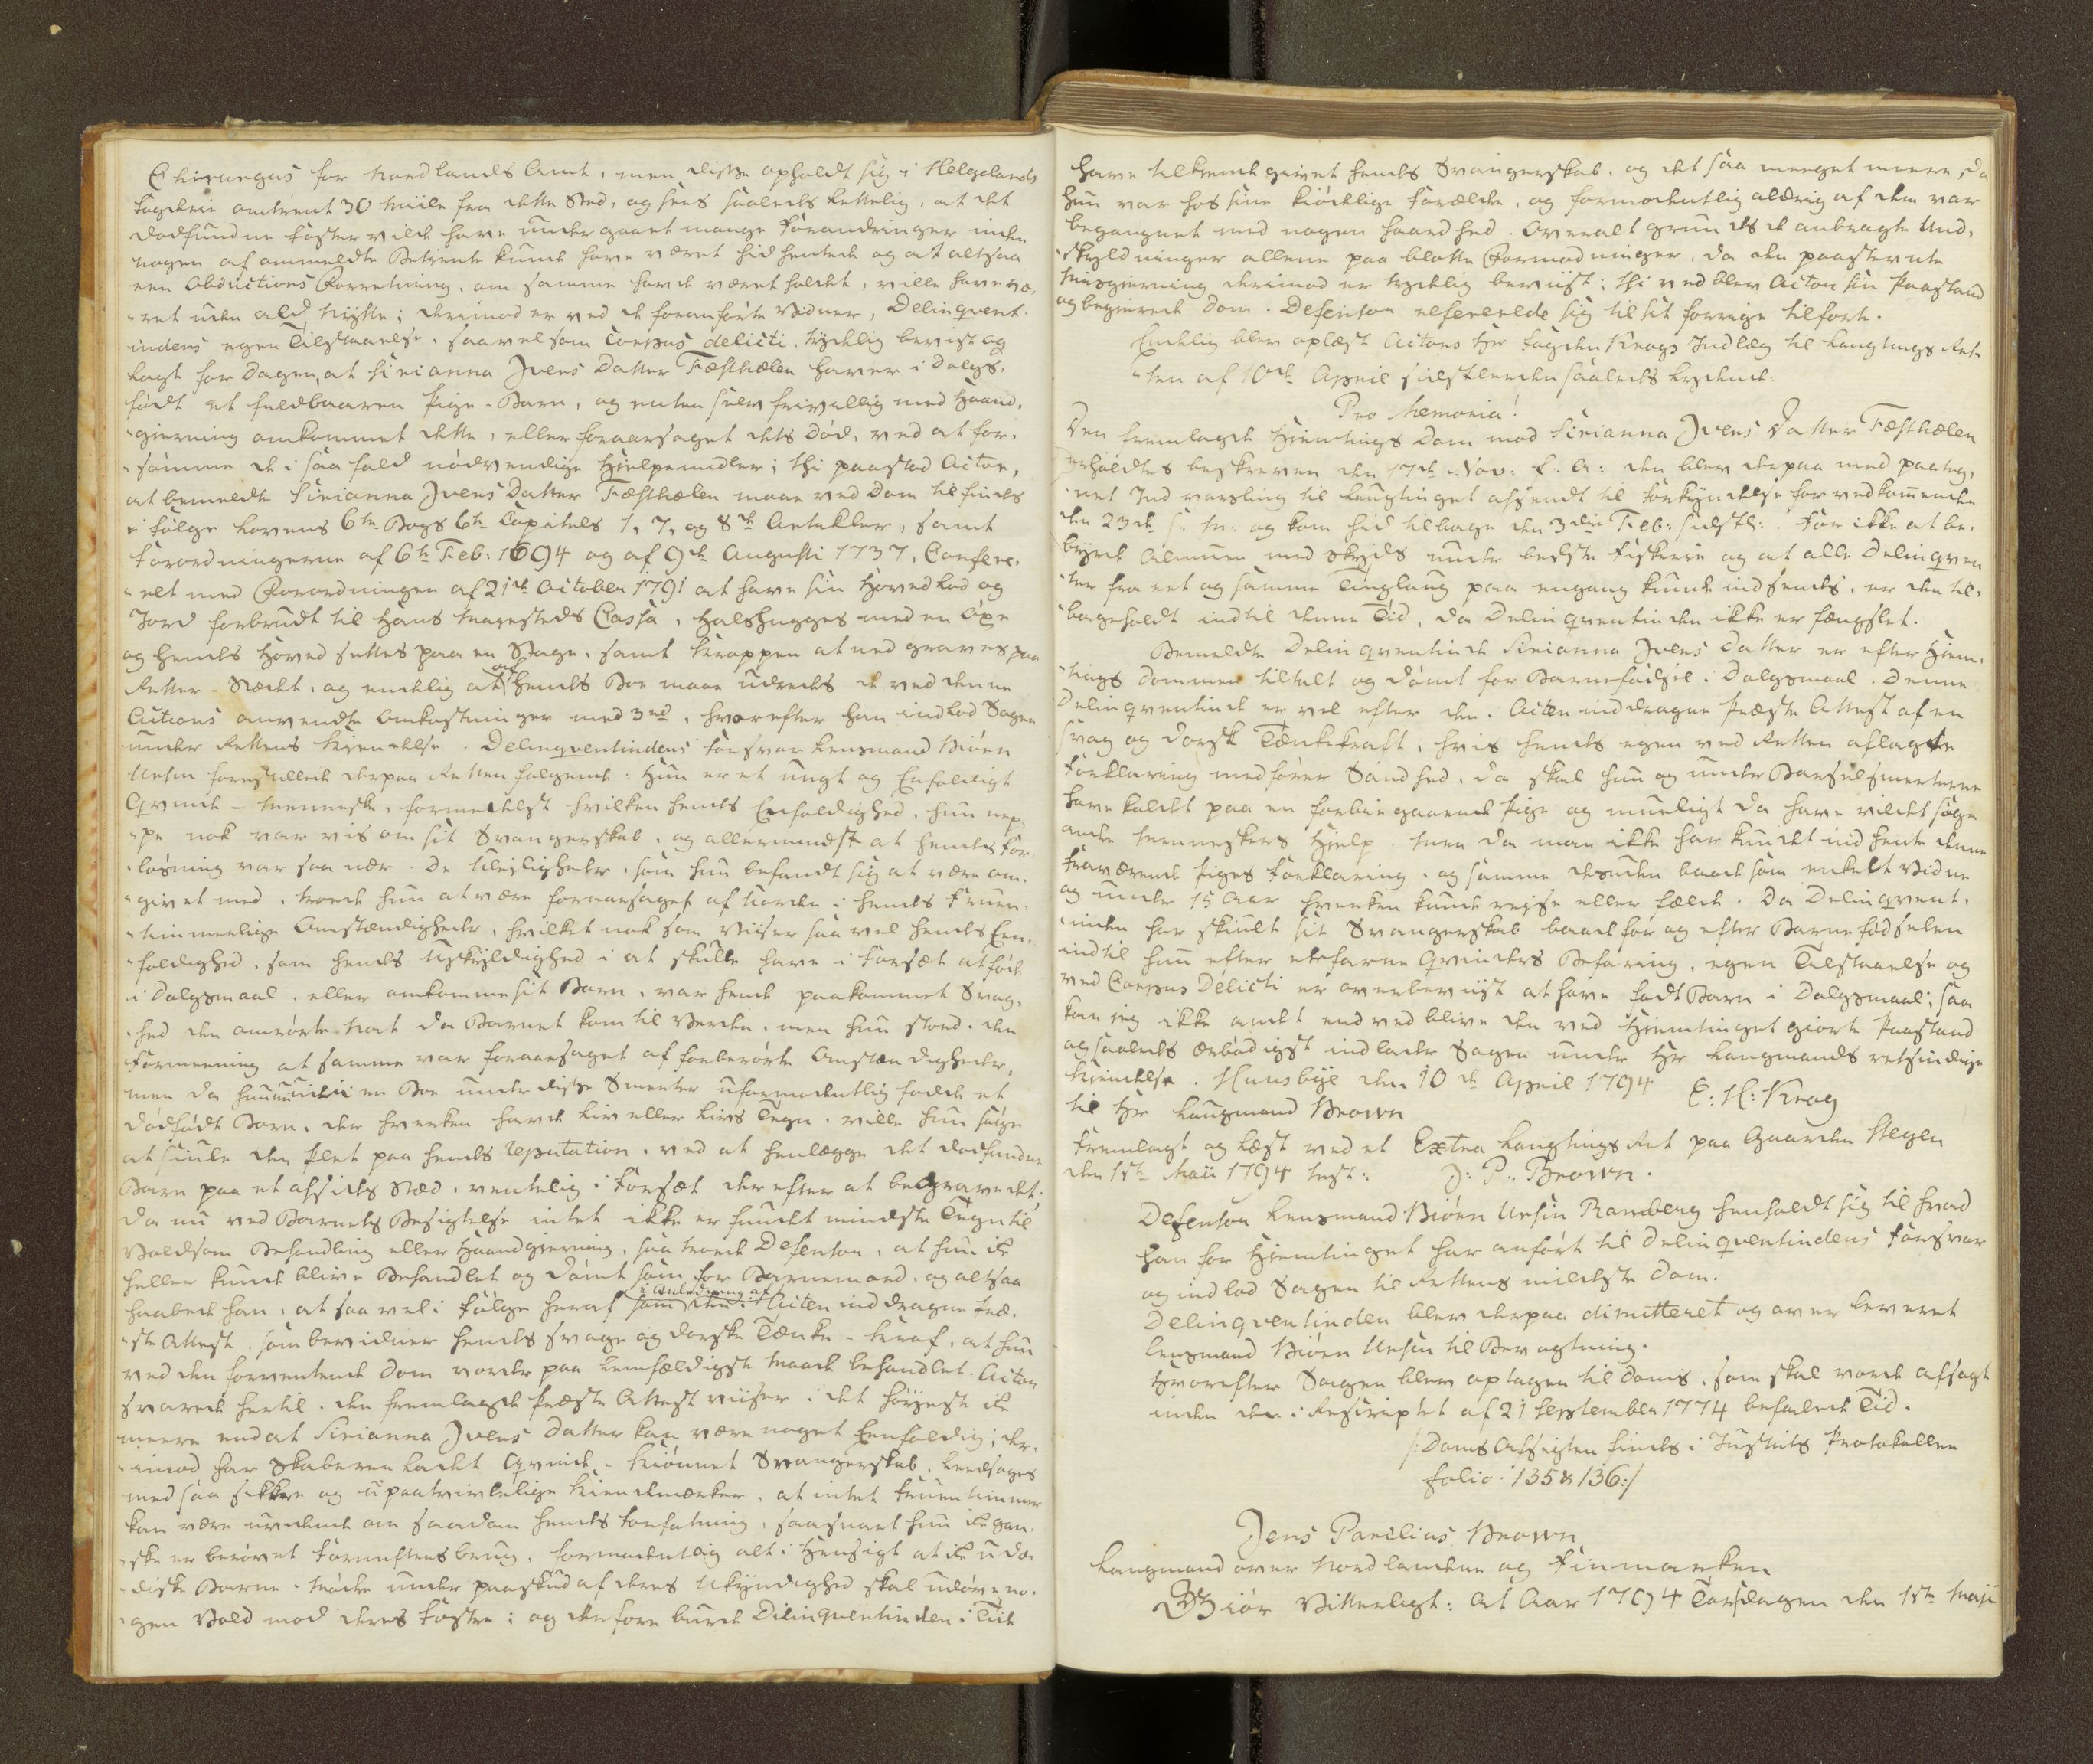 Chirurgus for Nordlands Amt, men disse opholdt sig i Helgelands
Fogderie omtrent 30 Miile fra dette Sted, og sees saaledes lettelig, at det
dødfundne Foster vilde have undergaaet mange Forandringer inden
nogen af ommeldte Betiente kunde have været hid hentede og at altsaa
een Obductions Forretning, om samme havde været holdt, ville have væ,
"ret uden ald Nytte; derimod er ved de foranførte Vidner, Delinqvent.
indens egen Tilstaaelse, saavelsom Corpus delicti, tydelig bevist og
lagt for Dagen, at Sirianna Ivers Datter Fæsthælen haver i Dølgs,
født et fuldbaaren Pige-Barn, og enten selv frivillig med Haand,
"gierning omkommet dette, eller foraarsaget dets Død, ved at for,
"sømme de i saa fald nødvendige Hielpemidler; thi paastod Actor,
at bemeldte Sirianna Ivers Datter Fæsthælen maae ved Dom tilfindes
i følge Lovens 6te Bogs 6te Capitels 1, 7, og 8de Articler, samt
Forordningerne af 6te Feb: 1694 og af 9de Augusti 1737, Confere,
"ret med Forordningen af 21de October 1791 at have sin Hovedlod og
Jord forbrudt til Hans Mayestets Cassa, Halshugges med en Øxe
og hendes Hoved settes paa en Stage, samt Kroppen at nedgraves paa
Retter-Stedet, og endelig at af hendes Boe maae udredes de ved denne
Actions anvendte Omkostninger med 3rd, hvorefter han indlod Sagen
under Rettens Kiendelse. Delinqventindens Forsvar Lensmand Biørn
Ursin forestillede derpaa Retten følgende: Hun er et ungt og Enfoldigt
Qvinde-Menneske, formedelst hvilken hendes Enfoldighed, hun nep,
"pe nok var vis om sit Svangerskab, og allermindst at hendes For,
"løsning var saa nær. De Uleiligheder, som hun befandt sig at være om,
"givet med, troede hun at være foraarsaget af Uorden i hendes Fruen,
"timmerlige Omstændigheder, hvilket nok som viiser saa vel hendes Een,
"foldighed, som hendes Uskyldighed i at skulle have i Forsæt at føde
i Dølgsmaal, eller omkomme sit Barn, var hende paakommet Svag,
"hed den omrørte Nat da Barnet kom til Verden, men hun stod i den
Formeening at samme var foraarsaget af forberørte Omstændigheder,
men da hun inden en Boe under disse Smerter uformodentlig fødde et
dødfødt Barn, der hverken havde Liv eller Livs Tegn, ville hun søge
at skiule den Plet paa hendes reputation, ved at henlægge det dødfundne
Barn paa et afsides Sted, ventelig i Forsæt derefter at begrave det;
da nu ved Barnets Besigtelse intet ikke er fundet mindste Tegn til
Voldsom Behandling eller Haandgierning, saa troede Defensor, at hun ik
heller kunde blive Behandlet og dømt som for Barnemord, og altsaa
haabede han, at saa vel i følge heraf som i Anledning af den i Acten inddragne Præ,
"ste Attest, som bevidner hendes svage og dorske Tænke-Kraf, at hun
ved den forventende Dom vorder paa lemfældigste Maade behandlet. Actor
svarede hertil, den fremlagde Præste Attest viiser i det høyeste ik
meere end at Sirianna Ivers Datter kan være noget Eenfoldig; der,
"imod har Skaberen ladet Qvinde-Kiønnet Svangerskab, ledsages
med saa sikkre og upaatvivlelige Kiendemærker, at intet Fruentimmer
kan være uvidende om saadan hendes Forfatning, saasnart hun ik gan,
"ske er berøvet Fornuftens brug, formodentlig alt i Hensigt at ik udæ,
"diske Barne-Mødre under paaskud af deres Ukyndighed skal udøve no,
"gen Vold mod deres Foster; og derfore burde Delinqventinden i Tide
have tilkiendegivet hendes Svangerskab, og det saa meeget meere, da
hun var hos sine kiødelige Forældre, og formodentlig aldrig af dem var
begangnet med nogen haardhed. Overalt grundes de anbragte Und,
"skyldninger allene paa blotte Formodninger, da den paastevnte
Misgierning derimod er tydelig beviist; thi ved blev Actor sin Paastand
og begierede Dom. Defensor refererede sig til sit forrige tilførte.
Endelig blev oplæst Actors Hr Fogden Krogs Indlæg til Laugtings Ret,
"ten af 10de April sidstleeden saaledes lydende:
Pro Memoria!
Den fremlagde Hiemtings Dom mod Sirianna Ivers Datter Fæsthælen
erholdtes beskreven den 17de Nov: f. A: den blev derpaa med paateg,
"net Indvarsling til Laugtinget afsendt til Forkyndelse for vedkommende
den 23de s. M: og kom hid tilbage den 3die Feb: sidstl:. For ikke at be,
byrde Almuen med Skyds under beste Fiskerie og at alle Delinqven
"ter fra eet og samme Tinglaug paa engang kunde indsendes, er den til,
"bageholdt indtil denne Tid, da Delinqventinden ikke er fængslet.
Bemeldte Delinqventinde Sirianna Ivers Datter er efter Hiem,
"tings Dommen tiltalt og dømt for Barnefødsel i Dølgsmaal. Denne
Delinqventinde er vel efter den i Acten inddragne Præste Attest af en
svag og dorsk Tænkekraft, hvis hendes egen ved Retten aflagte
Forklaring medfører Sandhed, da skal hun og under Barselsmerterne
have kaldt paa en forbiegaaende Pige og mueligt da have vildet søge
andre Menneskers Hielp. Men da man ikke har kundet indhente denne
Fraværende Piges Forklaring, og samme desuden baade som enkelt Vidne
og under 15 Aar hverken kunde reise eller fælde. Da Delinqvent,
"inden har skiult sit Svangerskab baade før og efter Barnefødselen
indtil hun efter erfarne Qvinders Beføring, egen Tilstaaelse og
ved Corpus Delicti er overbeviist at have født Barn i Dølgsmaal; saa
kan jeg ikke andet end vedblive den ved Hiemtinget giorte Paastand
og saaledes ærbødigst indlader Sagen under Hr Laugmands retsindige
Kiendelse. Huusbye den 10de April 1794 E: H: Krog
til Hr Laugmand Brown
Fremlagt og læst ved et Extra Laugtings Ret paa Gaarden Stegen
den 1ste Maii 1794 test: J: P: Brown.
Defensor Lensmand Biørn Ursin Ramberg henholdt sig til hvad
han for Hiemtinget har anført til Delinqventindens Forsvar
og indlod Sagen til Rettens mildeste Dom.
Delinqventinden blev derpaa dimitteret og overleveret
Lensmand Biørn Ursin til Bevogtning.
Hvorefter Sagen blev optagen til Doms, som skal vorde afsagt
inden den i Rescriptet af 21 September 1774 befalede Tid.
/: Doms Afsigten findes i Justits Protokollen
folio: 135 & 136:/
Jens Parelius Brown
Laugmand over Nordlandene og Finmarken
Giør Vitterligt: At Aar 1794 Torsdagen den 1ste Maji